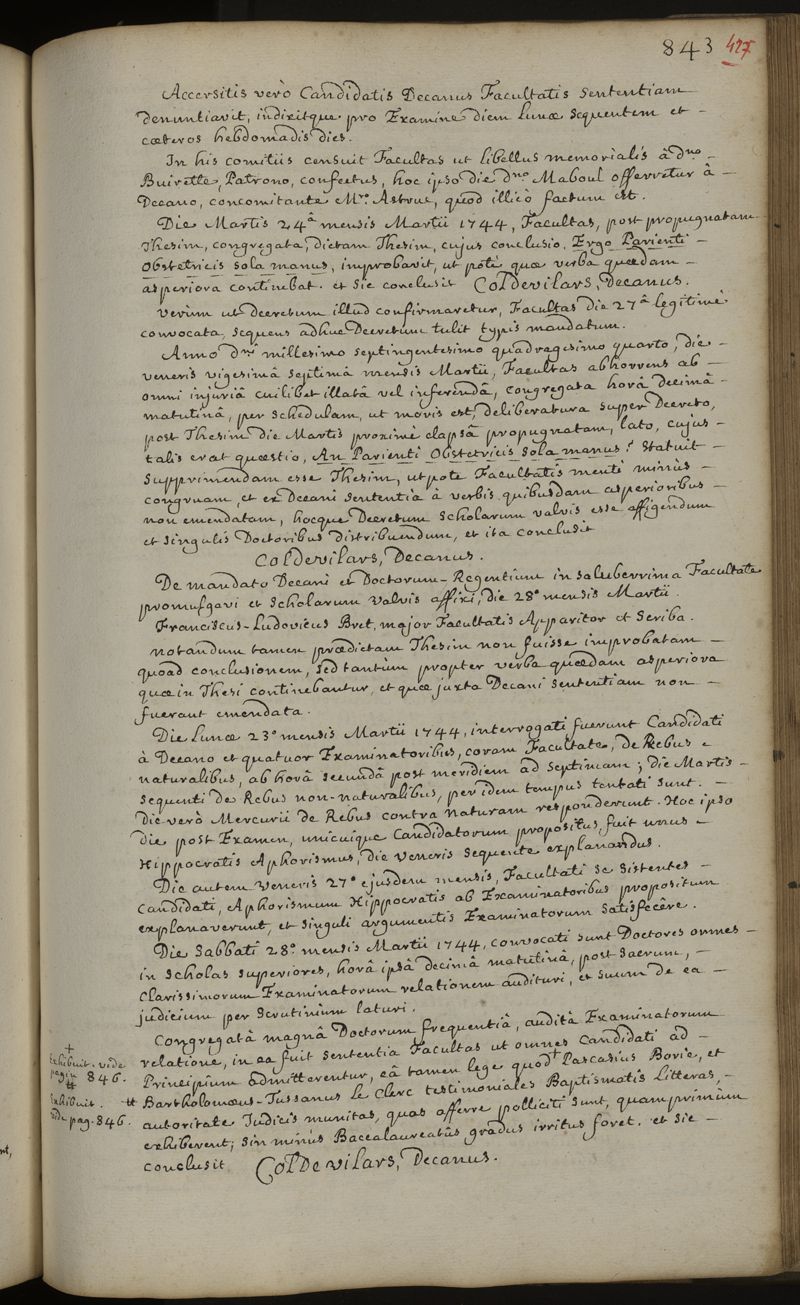 843 427
Accersitis verò Candidatis Decanus Facultatis Sententiam
denuntiavit, indixitque pro Examine diem Lunæ Sequentem et -
cæteros hebdomadis dies.
In his comitiis censuit Facultas ut libellus memorialis à dno -
Buirette, Patrono, confectus, hoc ipso die dno Maboul offerretur à -
Decano, concomitante Mro Astruc, quod illicò factum est.
Die Martis 24â mensis Martii 1744, Facultas, post propugnatam
Thesim, congregata, dictam Thesim, cujus conclusio, Ergo Parienti -
Obstetricis Sola manus, improbavit, ut potè quæ verba quædam -
asperiora continebat. et Sic conclusit ColDevilars, Decanus.
Verùm ut decretum illud confirmaretur, Facultas die 27â legitimè
convocata, Sequens adhuc Decretum tulit typis mandatum.
Anno dni millesimo Septingentesimo quadragesimo quarto, die -
veneris vigesimâ Septimâ mensis Martii, Facultas abhorrens ab -
omni injuriâ cuilibet illatâ vel inferendâ, congregata horâ decimâ -
matutinâ, per Schedulam, ut moris est, deliberatura Super Decreto,
post Thesim die Martis proximè elapsâ propugnatam, lato, cujus -
talis erat quæstio, An Parienti Obstetricis Sola manus? Statuit -
Supprimendam esse Thesim, utpote Facultatis menti minùs -
congruam, et ex Decani Sententia à verbis quibusdam asperioribus -
non emendatam, hocque Decretum Scholarum valvis esse affigendum
et Singulis Doctoribus distribuendum, et ita conclusit
ColDevilars, Decanus.
De mandato Decani et Doctorum-Regentium in Saluberrima Facultate
promulgavi et Scholarum valvis affixi, die 28â mensis Martii.
Franciscus-Ludovicus Bret, major Facultatis Apparitor et Scriba.
notandum tamen prædictam Thesim non fuisse improbatam -
quoad conclusionem, Sed tantùm propter verba quædam asperiora
quæ in Thesi continebantur, et quæ juxta Decani Sententiam non -
fuerant emendata.
Die Lunæ 23â mensis Martii 1744, interrogati fuerunt Candidati
à Decano et quatuor Examinatoribus, coram Facultate, De Rebus -
naturalibus, ab horâ Secundâ post meridiem ad Septimam; die Martis -
Sequenti de Rebus non-naturalibus, per idem tempus tentati Sunt. -
Die verò Mercurii de Rebus contra naturam responderunt. Hoc ipso
die post Examen, unicuique Candidatorum propositus fuit unus -
Hippocratis Aphorismus, die Veneris Sequente explanandus.
Die autem Veneris 27â ejusdem mensis, Facultati Se Sistentes -
Candidati, Aphorismum Hippocratis ab Examinatoribus propositum
explanaverunt, et Singuli argumentis Examinatorum Satisfecêre.
Die Sabbati 28â mensis Martii 1744, convocati Sunt Doctores omnes -
in Scholas Superiores, horâ ipsâ decimâ matutinâ, post Sacrum, -
Clarissimorum Examinatorum relationem audituri, et Suum de ea -
judicium per Scrutinium laturi.
Congregatâ magnâ Doctorum frequentiâ, auditâ Examinatorum
relatione, in ea fuit Sententia Facultas ut omnes Candidati ad -
Principium admitterentur, eâ tamen lege quod + Pascasius Borie, et
# Bartholomæus-Tussanus Le Clerc testimoniales Baptismatis Litteras, -
autoritate Judicis munitas, quas afferre polliciti Sunt, quamprimùm
exhiberent; Sin minùs Baccalaureatûs gradus irritus foret. et Sic -
conclusit ColDevilars, Decanus.
+
Exhibuit. vide
pagin 846.
#
Exhibuit.
vide pag. 846.